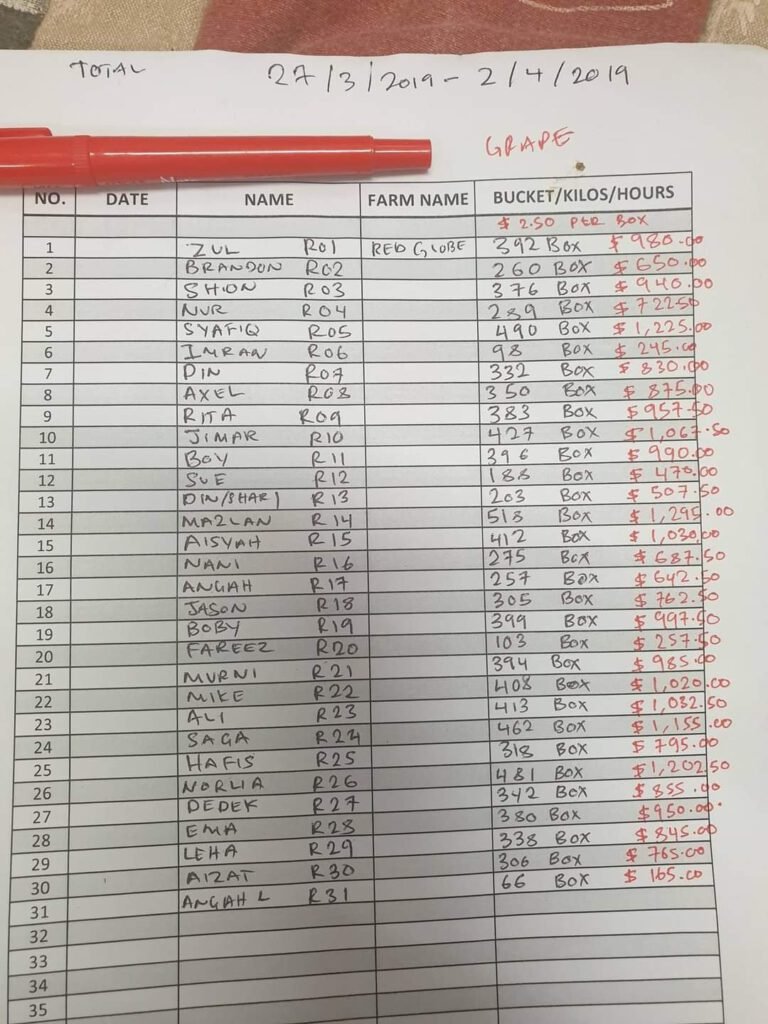 TOTAL 27/3/2019 - 2/4/2019
GRAPE
NO. DATE NAME FARM NAME BUCKET/KILOS/HOURS
$ 2.50 PER BOX
1 ZUL R01 RED GLOBE 392 Box $ 980.00
2 BRANDON R02 260 BOX $ 650.00
3 SHION R03 376 Box $ 940.00
4 NUR R04 289 Box $ 722.50
5 SYAFIQ R05 490 Box $ 1,225.00
6 IMRAN R06 98 Box $ 245.00
7 DIN R07 332 Box $ 830.00
8 AXEL R08 350 Box $ 875.00
9 RITA R09 383 Box $ 957.50
10 JIMAR R10 427 Box $ 1,067.50
11 BOY R11 396 Box $ 990.00
12 SUE R12 188 Box $ 470.00
13 DIN/SHARI R13 203 Box $ 507.50
14 MAZLAN R14 518 Box $ 1,295.00
15 AISYAH R15 412 Box $ 1,030.00
16 NANI R16 275 Box $ 687.50
17 ANGAH R17 257 Box $ 642.50
18 JASON R18 305 Box $ 762.50
19 BOBY R19 399 Box $ 997.50
20 FAREEZ R20 103 Box $ 257.50
21 MURNI R21 394 Box $ 985.00
22 MIKE R22 408 Box $ 1,020.00
23 ALI R23 413 Box $ 1,032.50
24 SAGA R24 462 Box $ 1,155.00
25 HAFIS R25 318 Box $ 795.00
26 NORLIA R26 481 Box $ 1,202.50
27 DEDEK R27 342 Box $ 855.00
28 EMA R28 380 Box $ 950.00
29 LEHA R29 338 Box $ 845.00
30 AIZAT R30 306 Box $ 765.00
31 ANGAH L R31 66 Box $ 165.00
32
33
34
35